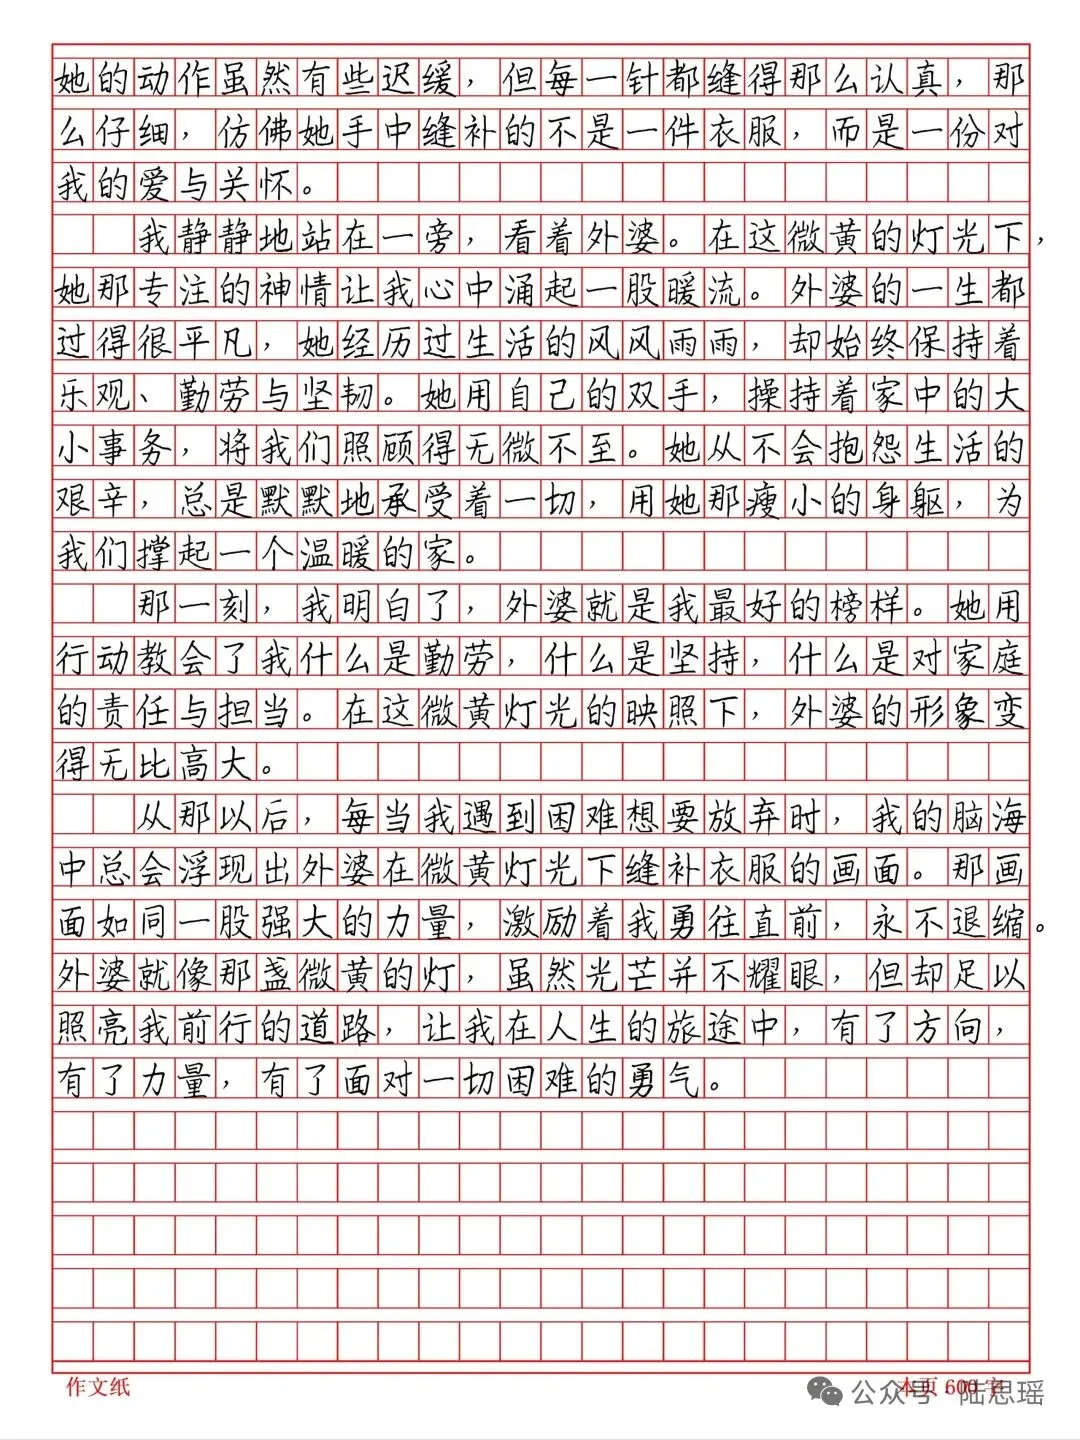 她的动作虽然有些迟缓，但每一针都缝得那么认真，那
么仔细，仿佛她手中缝补的不是一件衣服，而是一份对
我的爱与关怀。
我静静地站在一旁，看着外婆。在这微黄的灯光下，
她那专注的神情让我心中涌起一股暖流。外婆的一生都
过得很平凡，她经历过生活的风风雨雨，却始终保持着
乐观、勤劳与坚韧。她用自己的双手，操持着家中的大
小事务，将我们照顾得无微不至。她从不会抱怨生活的
艰辛，总是默默地承受着一切，用她那瘦小的身躯，为
我们撑起一个温暖的家。
那一刻，我明白了，外婆就是我最好的榜样。她用
行动教会了我什么是勤劳，什么是坚持，什么是对家庭
的责任与担当。在这微黄灯光的映照下，外婆的形象变
得无比高大。
从那以后，每当我遇到困难想要放弃时，我的脑海
中总会浮现出外婆在微黄灯光下缝补衣服的画面。那画
面如同一股强大的力量，激励着我勇往直前，永不退缩。
外婆就像那盏微黄的灯，虽然光芒并不耀眼，但却足以
照亮我前行的道路，让我在人生的旅途中，有了方向，
有了力量，有了面对一切困难的勇气。
作文纸
本页600字
公众号 陆思瑶